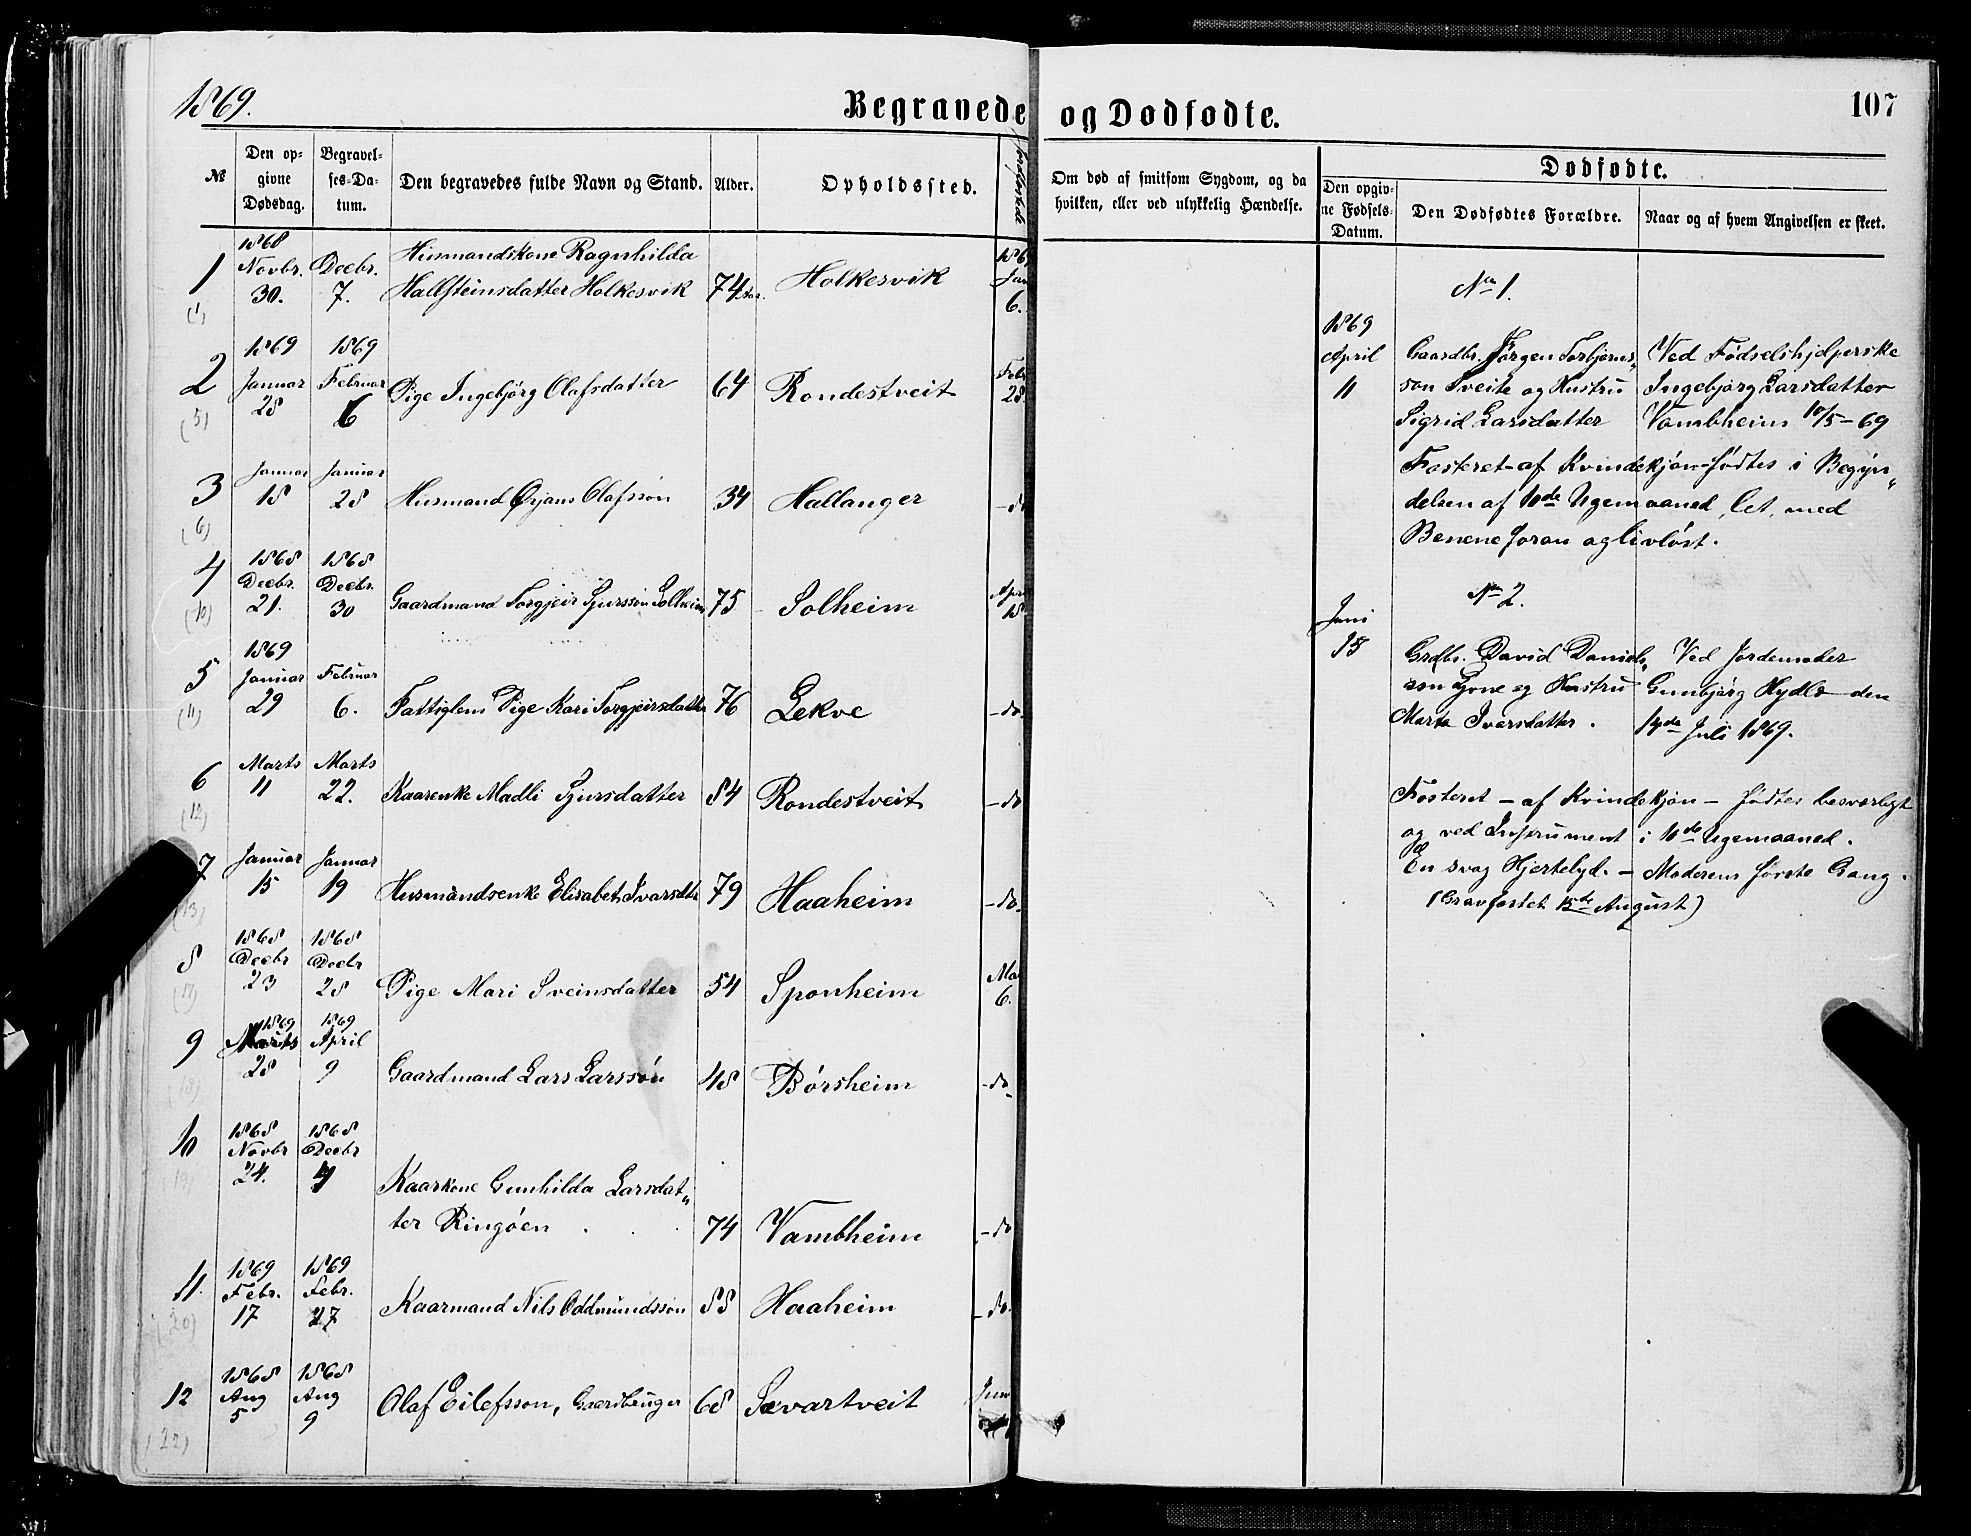 1869.
Begravede og Dødfødte.
107
№
Den op-
givne
Dødsdag.
Begravel-
ses-Da-
tum.
Den begravedes fulde Navn og Stand.
Alder.
Opholdssted.
Om død af smitsom Sygdom, og da
hvilken, eller ved ulykkelig Hændelse.
Dødfødte.
Den opgiv-
ne Fødsels-
Datum.
Den Dødfødtes Forældre.
Naar og af hvem Angivelsen er skeet.
1868
1 Novbr. Decbr. Husmandskone Ragnhilda
30. 7. Hallsteinsdatter Holkesvik 74 Aar. Holkesvik 6.
(1)
1869 1869
2 Januar Februar Pige Ingebjørg Olafsdatter 64 Rondestveit Febr
28 6 28
(5)
3 Januar Januar
18 28 Husmand Ørjans Olafssøn 34 Hallanger - do
(6)
4 1868 1868
Decbr. Decbr.
21. 30 Gaardmand Torgjeir Sjurssøn Solheim 75 Solheim 18
(10)
1869
5 Januar Februar
29 6. Fattiglem Pige Kari Torgjeirsdatter 76 Lekve - do.
(11)
6 Marts Marts
11 22. Kaarenke Madli Sjursdatter 84 Rondestveit - do
(12)
7 Januar Januar
15 19 Husmandsenke Elisabet Ivarsdtr 79 Haaheim - do.
(13)
1868 1868
8 Decbr Decbr
23 28 Pige Mari Sveinsdatter 54 Sponheim Mai
(17) 6.
1869 1869
9 Marts April
28 9 Gaardmand Lars Larssøn 48 Børsheim - do
(18)
10 1868 1868
Novbr Decbr
24. 4 Kaarkone Gunhilda Larsdat„
ter Ringøen 74 Vambheim - do
1869 1869
11. Febr. Febr.
17 27 Kaarmand Nils Oddmundssøn 88 Haaheim - do.
(20)
1868 1868
12 Aug Aug
5 9 Olaf Eilefsson, Gaardbruger 68 Sævartveit Juni
(22)
No 1.
1869
April
11
Gaardbr. Jørgen Torbjørns„
søn Tveite og Hustru
Sigrid Larsdatter
Ved Fødselshjelperske
Ingebjørg Larsdatter
Vambheim 10/5 - 69
Fosteret - af Kvindekjøn - fødtes i Begyn„
delsen af 10de Ugemaaned, let, med
Benene foran og livløst.
No 2.
Juni
15
Grdbr. David Daniels„
søn Lone og Hustru
Marta Ivarsdatter.
Ved Jordemoder
Gunbjørg Hydle den
14de Juli 1869.
Fosteret - af Kvindekjøn - fødtes besværligt
og ved Instrument i 10de Ugemaaned.
En svag Hjertelyd. - Moderens første Gang.
(Gravfæstet 15de August)